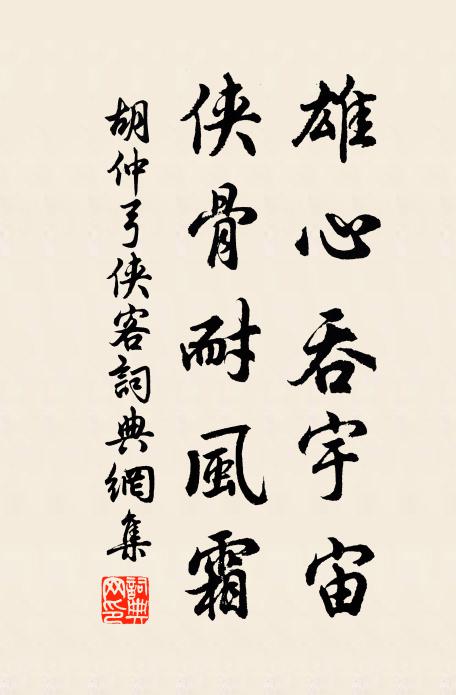 雄心吞宇宙
俠骨耐風霜
胡仲弓俠客詞典網集
詞典网印